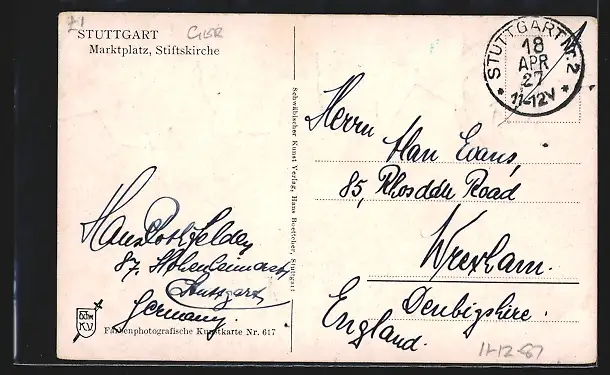 71
STUTTGART
GER
Marktplatz, Stiftskirche
STUTTGART Nr. 2
18
APR
27
11-12V
Herrn Alan Evans,
85, Rhosddu Road
Wrexham.
Denbigshire.
England.
Schwäbischer Kunst Verlag, Hans Boettcher, Stuttgart
Hans
87,
Stuttgart
Germany.
K.V.
Farbenphotografische Kunstkarte Nr. 617
11-12-87